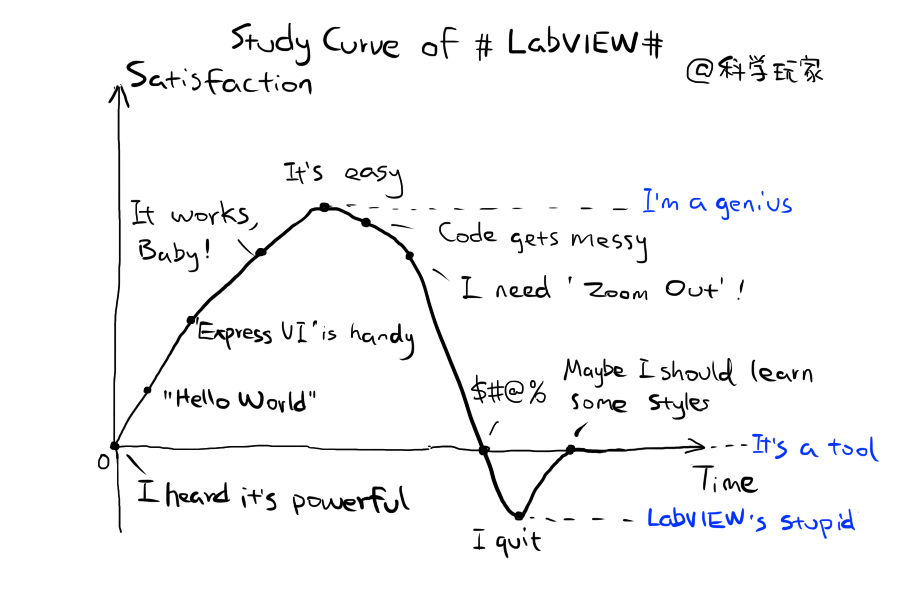 Study Curve of # LabVIEW#
@科学玩家
Satisfaction
It's easy
I'm a genius
It works,
Baby!
Code gets messy
I need 'Zoom Out'!
"Express VI" is handy
"Hello World"
$#@%
Maybe I should learn
some styles
It's a tool
0
Time
I heard it's powerful
I quit
LabVIEW's stupid